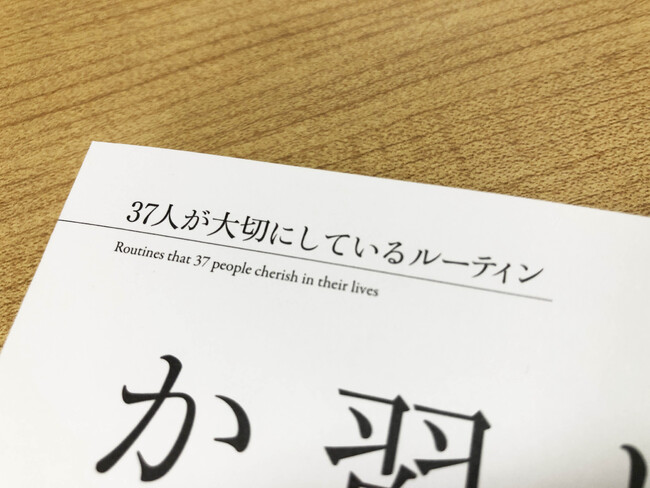 37人が大切にしているルーティン
Routines that 37 people cherish in their lives
か 習